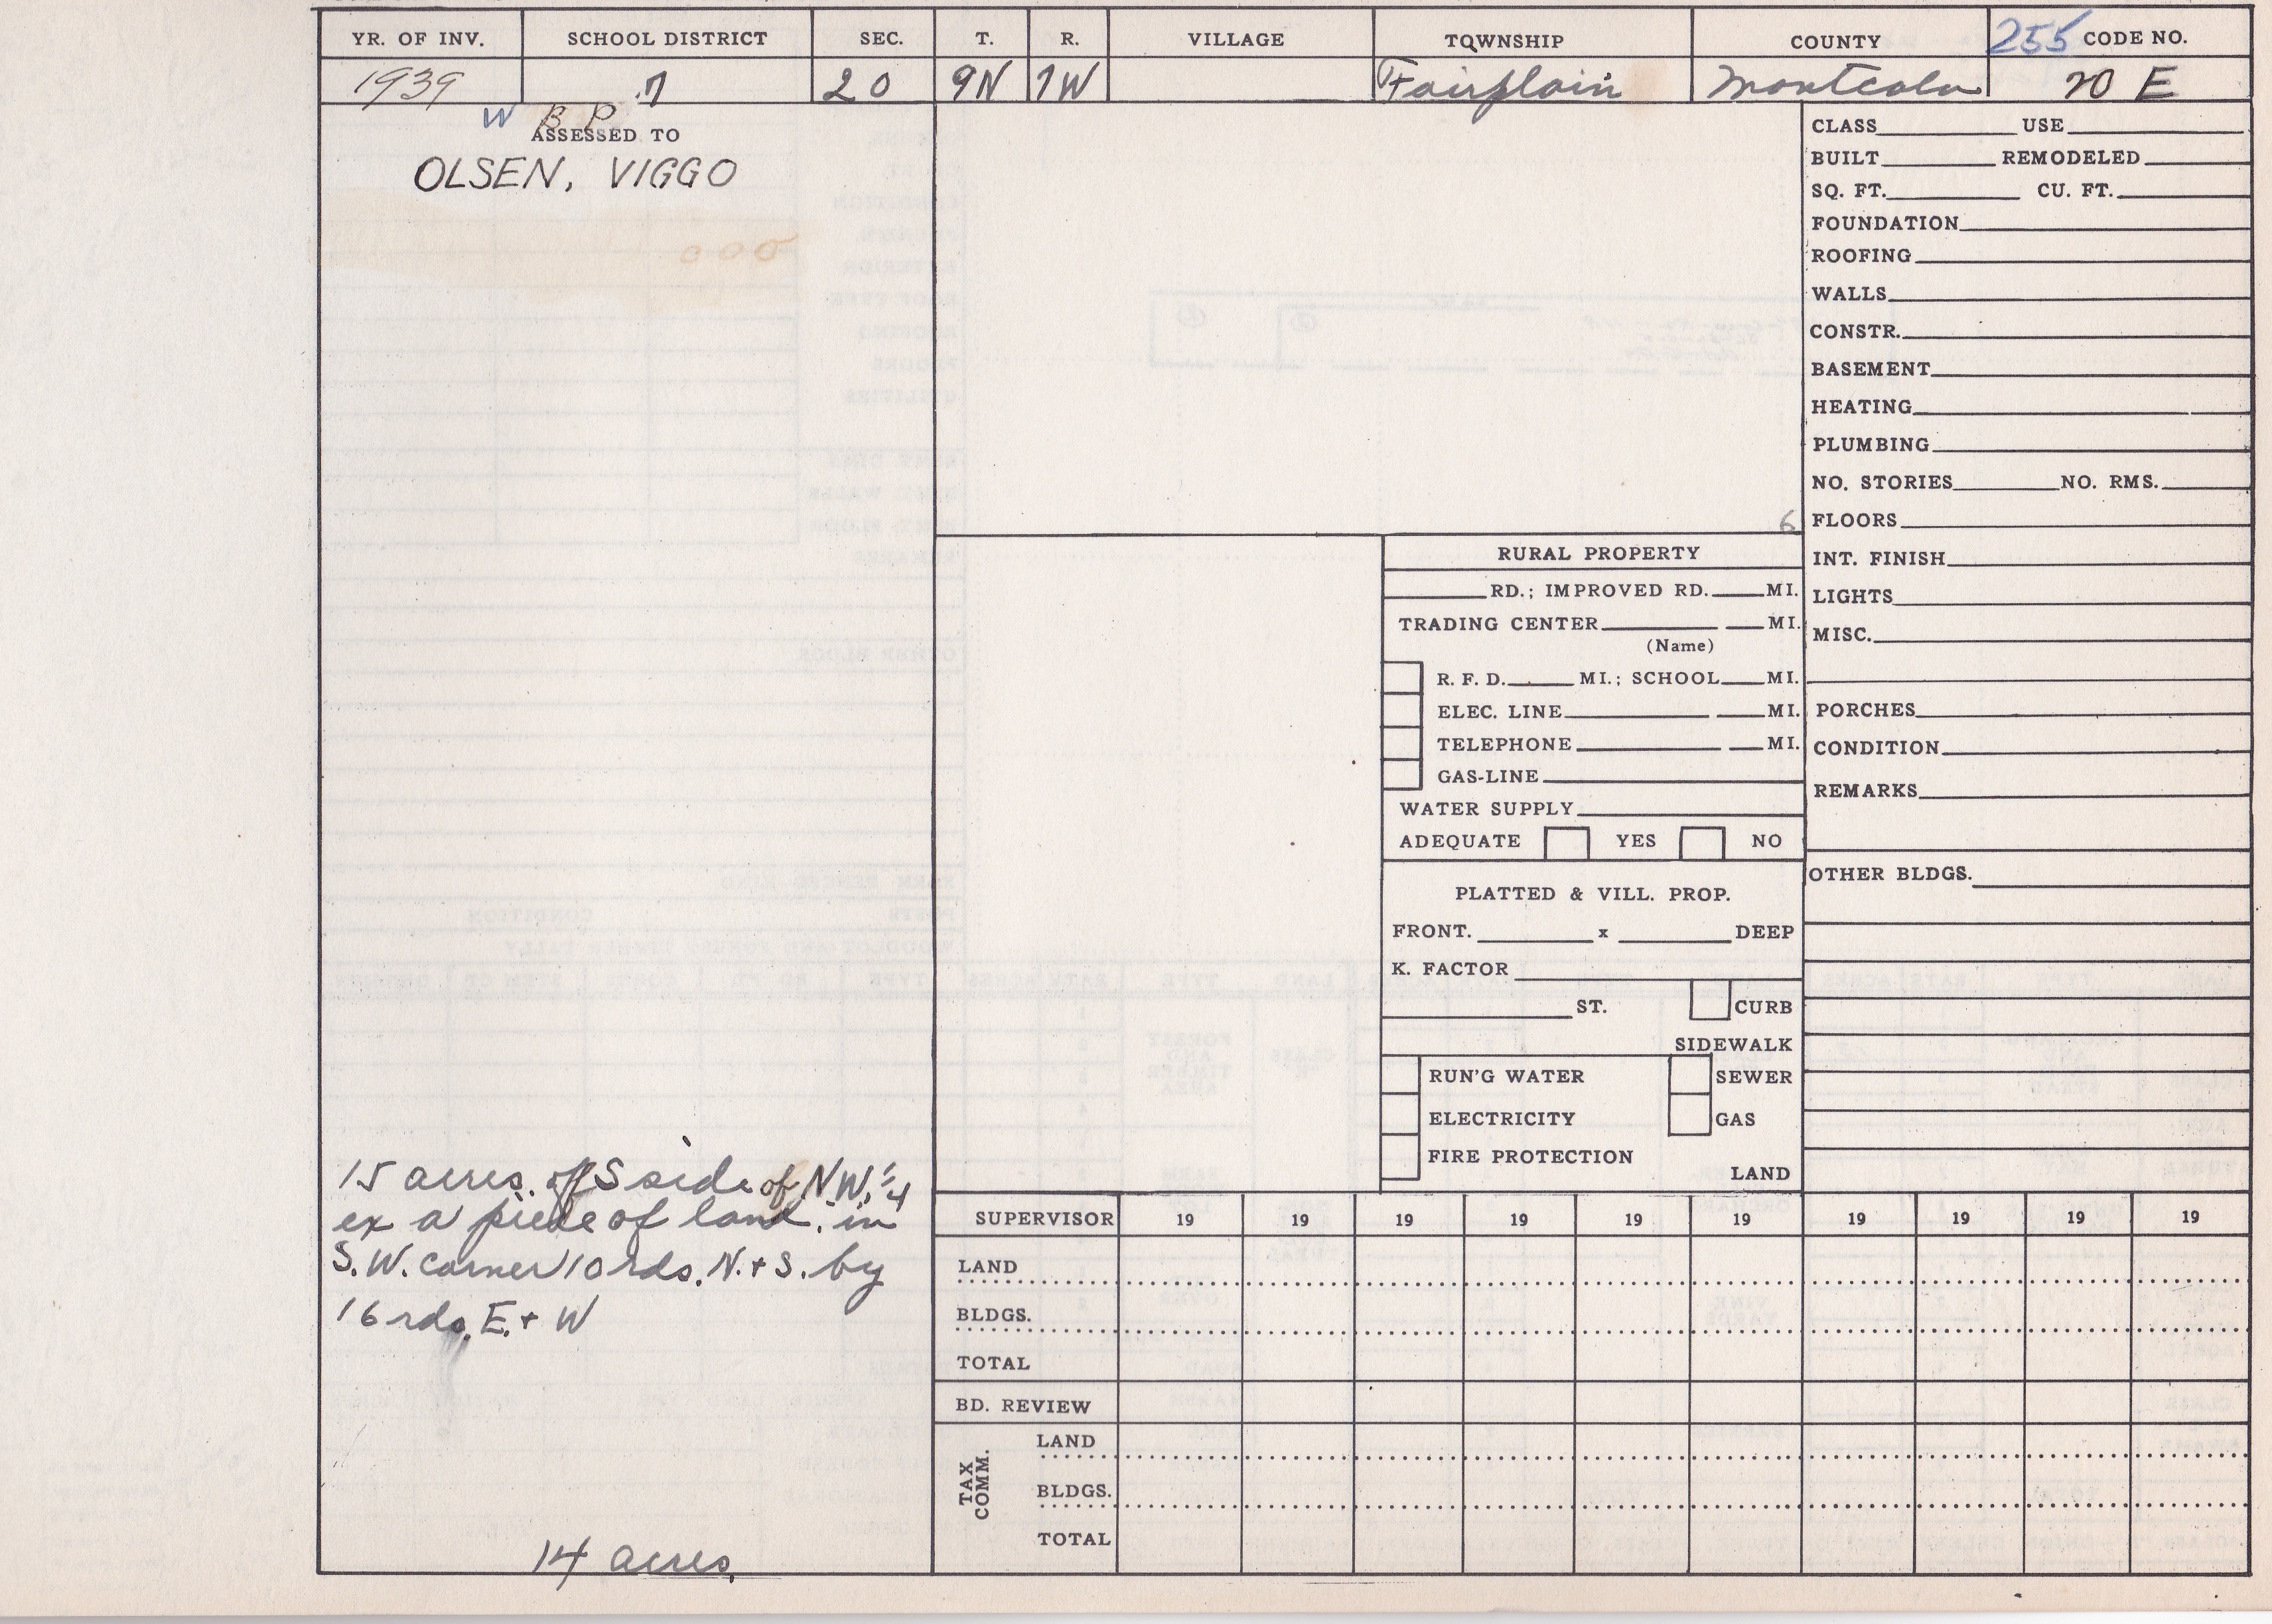 YR. OF INV. SCHOOL DISTRICT SEC. T. R. VILLAGE TOWNSHIP COUNTY 255 CODE NO.
1939 7 20 9N 7W Fairplain Montcalm 20 E
W B P
ASSESSED TO
OLSEN, VIGGO
15 acres. of S side of N.W. 1/4
ex a piece of land in
S.W. corner 10 rds. N. + S. by
16 rds. E. + W
14 acres.
6
RURAL PROPERTY
RD.; IMPROVED RD. MI.
TRADING CENTER MI.
(Name)
R. F. D. MI.; SCHOOL MI.
ELEC. LINE MI.
TELEPHONE MI.
GAS-LINE
WATER SUPPLY
ADEQUATE YES NO
PLATTED & VILL. PROP.
FRONT. x DEEP
K. FACTOR
ST. CURB
SIDEWALK
RUN'G WATER SEWER
ELECTRICITY GAS
FIRE PROTECTION
LAND
CLASS USE
BUILT REMODELED
SQ. FT. CU. FT.
FOUNDATION
ROOFING
WALLS
CONSTR.
BASEMENT
HEATING
PLUMBING
NO. STORIES NO. RMS.
FLOORS
INT. FINISH
LIGHTS
MISC.
PORCHES
CONDITION
REMARKS
OTHER BLDGS.
SUPERVISOR 19 19 19 19 19 19 19 19 19 19
LAND
BLDGS.
TOTAL
BD. REVIEW
TAX COMM.
LAND
BLDGS.
TOTAL